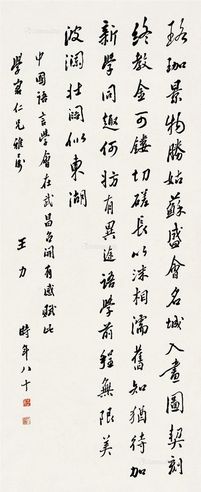 珞珈景物勝姑蘇盛會名城入畫圖契刻
終教金可鏤切磋長以沫相濡舊知猶待加
新學同趣何妨有異途語學前程無限美
波瀾壯闊似東湖
中國語言學會在武昌召開有感賦此
學家仁兄雅屬
王力
時年八十